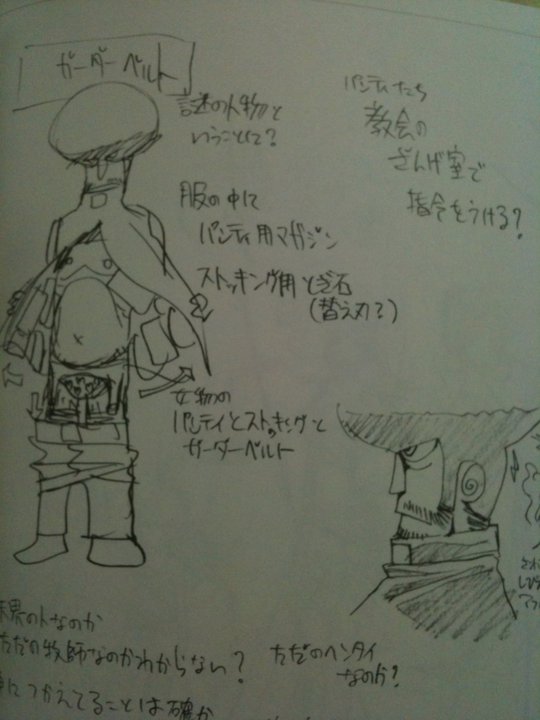 ガーダーベルト
謎の人物と
いうことにて?
パンティたち
教会の
ざんげ室で
指令をうける?
服の中に
パンティ用マガジン
ストッキング用と石
(替え刃?)
女物の
パンティとストッキングと
ガーダーベルト
界の人なのか
ただの牧師なのかわからない?
につかえてることは確か
ただのヘンタイ
なのか?